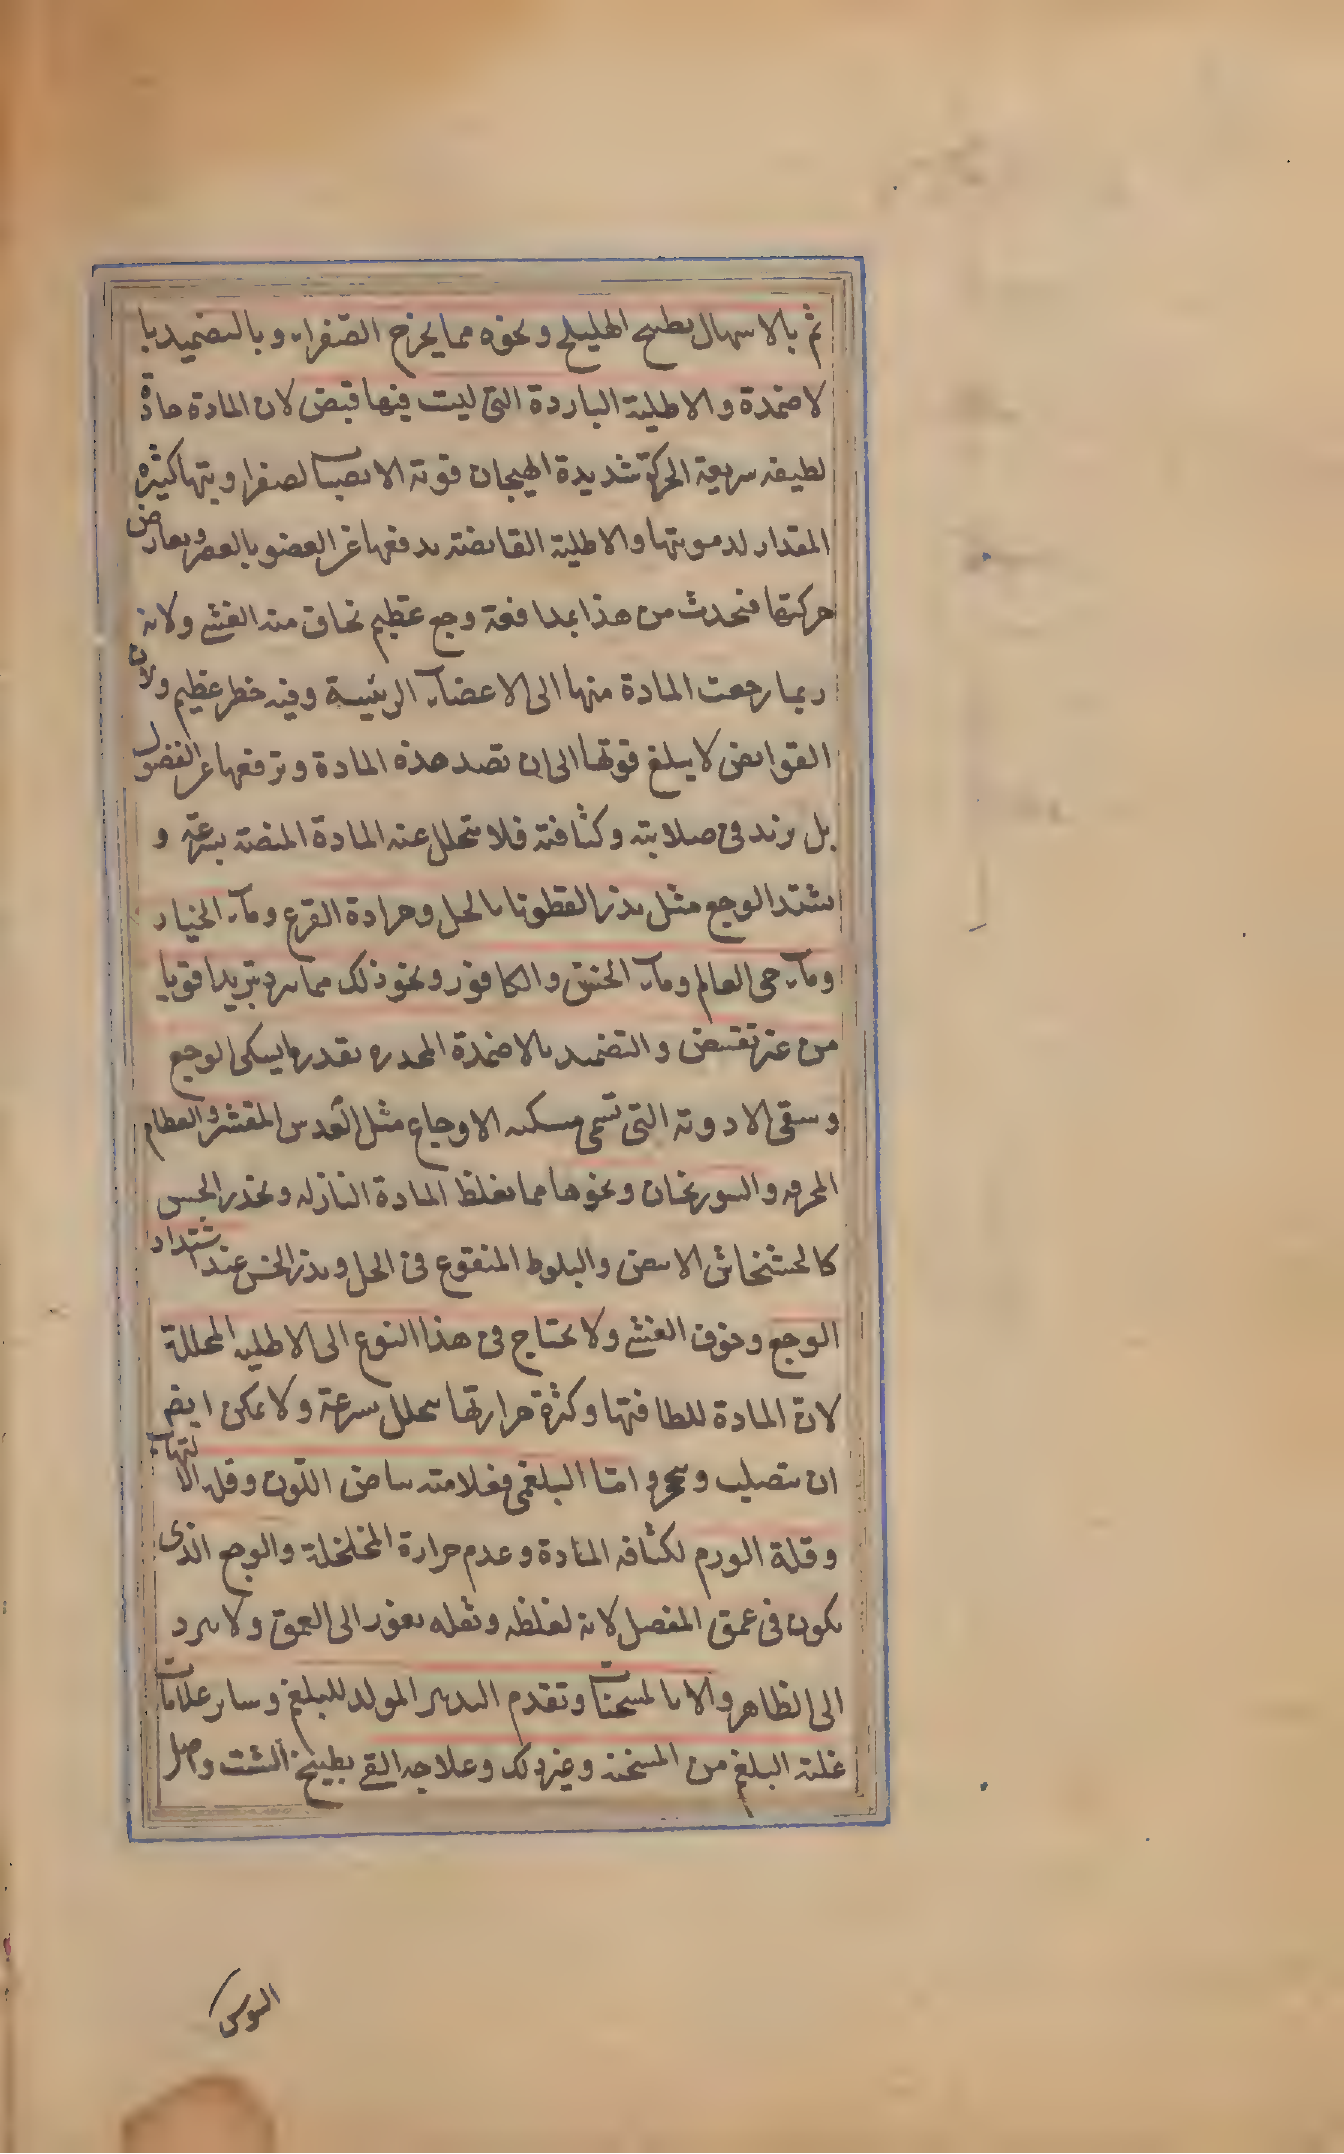 ثم بالاسهال بطبيخ الهليلج ونحوه مما يخرج الصّفراء وبالتضميد با
لاضمدة والاطلية الباردة التى ليت فيها قبض لان المادة حادّة
لطيفه سريعة الحركة شديدة الهيجان قوية الانصباب لصفراويتها كثيره
المقدار لدمويتها والاطلية القابضة يدفعها عن العضو بالعصر ويعارض
حركتها فيحدث من هذا بمدافعة وجع عظيم يخاف منه الغشى ولانه
ربما رجعت المادة منها الى الاعضاء الرئيسة وفيه خطر عظيم ولان
القوابض لا يبلغ قوتها الى ان تصد هذه المادة وترفعها عن الفضول
بل يزيد فى صلابته وكثافته فلا يتحلل عنه المادة المنصبة بسرعة و
يشتد الوجع مثل بذر القطونا بالخل وجرادة القرع وماء الخيار
وماء حى العالم وماء الخس والكافور ونحو ذلك مما يبرد تبريدا قويا
من غير تقبيض والتضميد بالاضمدة المخدره بقدر ما يسكن الوجع
وسقى الادوية التى تسمى مسكنه الاوجاع مثل العدس المقشر والعظام
المحرقه والسورنجان ونحوها مما يغلظ المادة النازله ويخدر الحس
كالخشخاش الابيض والبلوط المنقوع فى الخل وبذر الخس عند اشتداد
الوجع وخوف الغشى ولا يحتاج فى هذا النوع الى الاطليه المحللة
لان المادة للطافتها وكثرة حرارتها يتحلل سرعة ولا يمكن ايضا
ان يتصلب ويتحجر واما البلغمى فعلامته بياض اللون وقله الالتهاب
وقلة الورم لكثافه المادة وعدم حرارة المخلخلة والوجع الذى
يكون فى عمق المفصل لانه لغلظه وثقله يغور الى العمق ولا يبرد
الى الظاهر والا بالمسخنات وتقدم التدبير المولد للبلغم وساير علامات
غلبة البلغم من السخنة وغير ذلك وعلاجه القى بطبيخ الشبت واصل
السوس